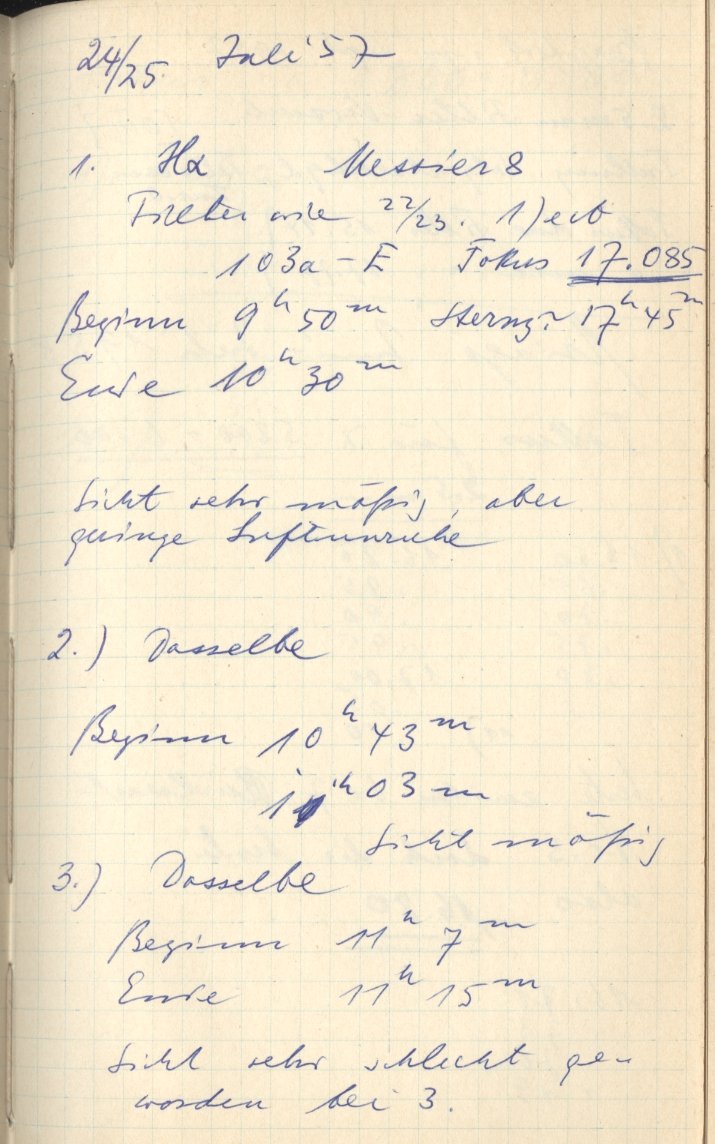 24/25. Juli '57
1. Hα Messier 8
Filter wie 22/23. 1)
103a-E Fokus 17.085
Beginn 9h 50m Sternz. 17h 45m
Ende 10h 30m
Sicht sehr mäßig, aber
geringe Luftunruhe
2.) Dasselbe
Beginn 10h 43m
11h 03m
Sicht mäßig
3.) Dasselbe
Beginn 11h 7m
Ende 11h 15m
Sicht sehr schlecht ge-
worden bei 3.